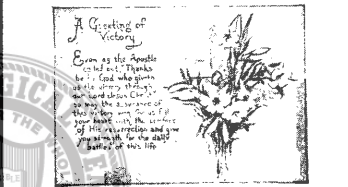 A Greeting of
Victory
Even as the Apostle
called out, "Thanks
be to God who giveth
us the victory through
our Lord Jesus Christ"
so may the assurance of
this victory won for us fill
your heart with the
of His resurrection and give
you strength for the daily
battles of this life
THE